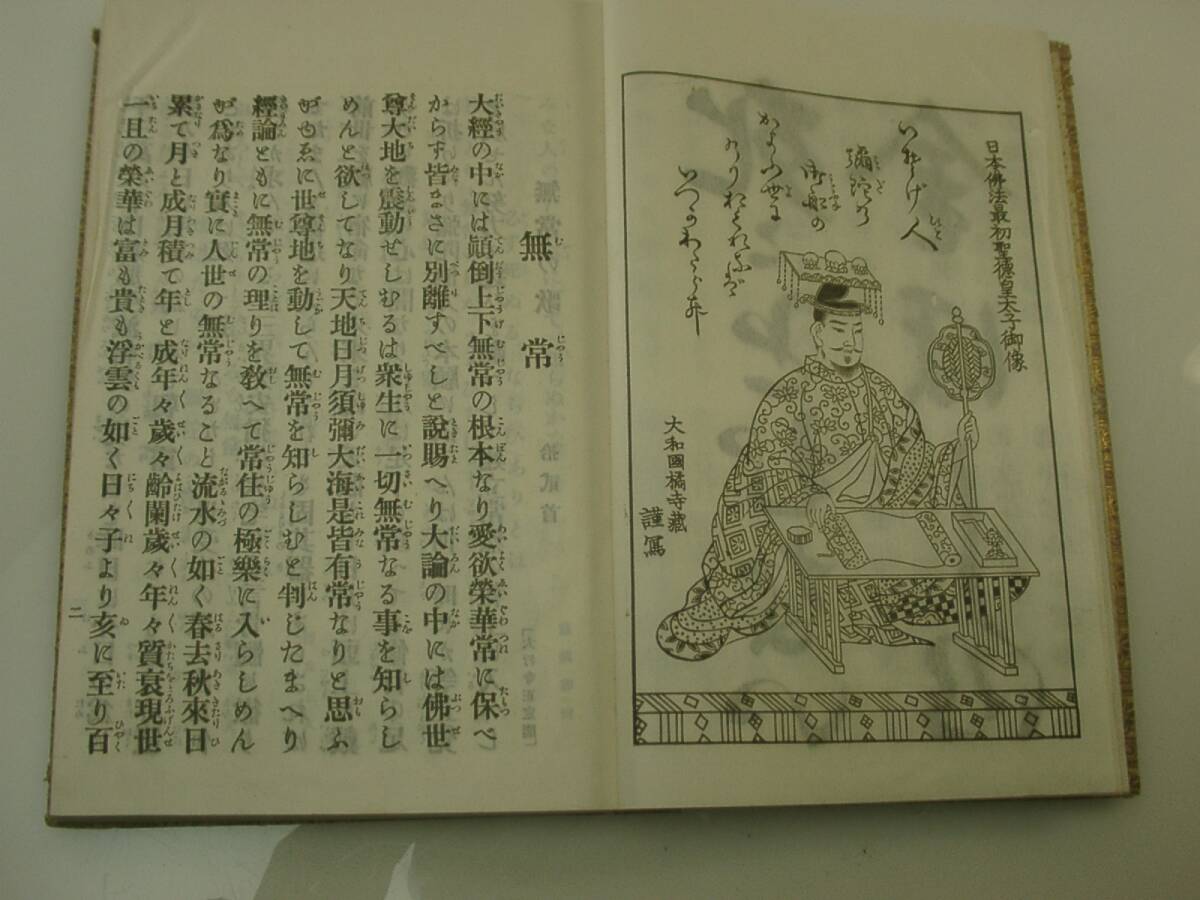 日本佛法最初聖德皇太子御像
いそげ人
彌陀の
御船の
かよふ世に
のりおくれなば
いつかわたらむ
大和國橘寺藏
謹寫
無常
大經の中には顚倒上下無常の根本なり愛欲榮華常に保べ
からず皆まさに別離すべしと說賜へり大論の中には佛世
尊大地を震動せしむるは衆生に一切無常なる事を知らし
めんと欲してなり天地日月須彌大海是皆有常なりと思ふ
がゆゑに世尊地を動して無常を知らしむと判じたまへり
經論ともに無常の理りを敎へて常住の極樂に入らしめん
が爲なり實に人世の無常なること流水の如く春去秋來日
累て月と成月積て年と成年々歲々齡闌歲々年々質衰現世
一旦の榮華は富も貴も浮雲の如く日々子より亥に至り百
二